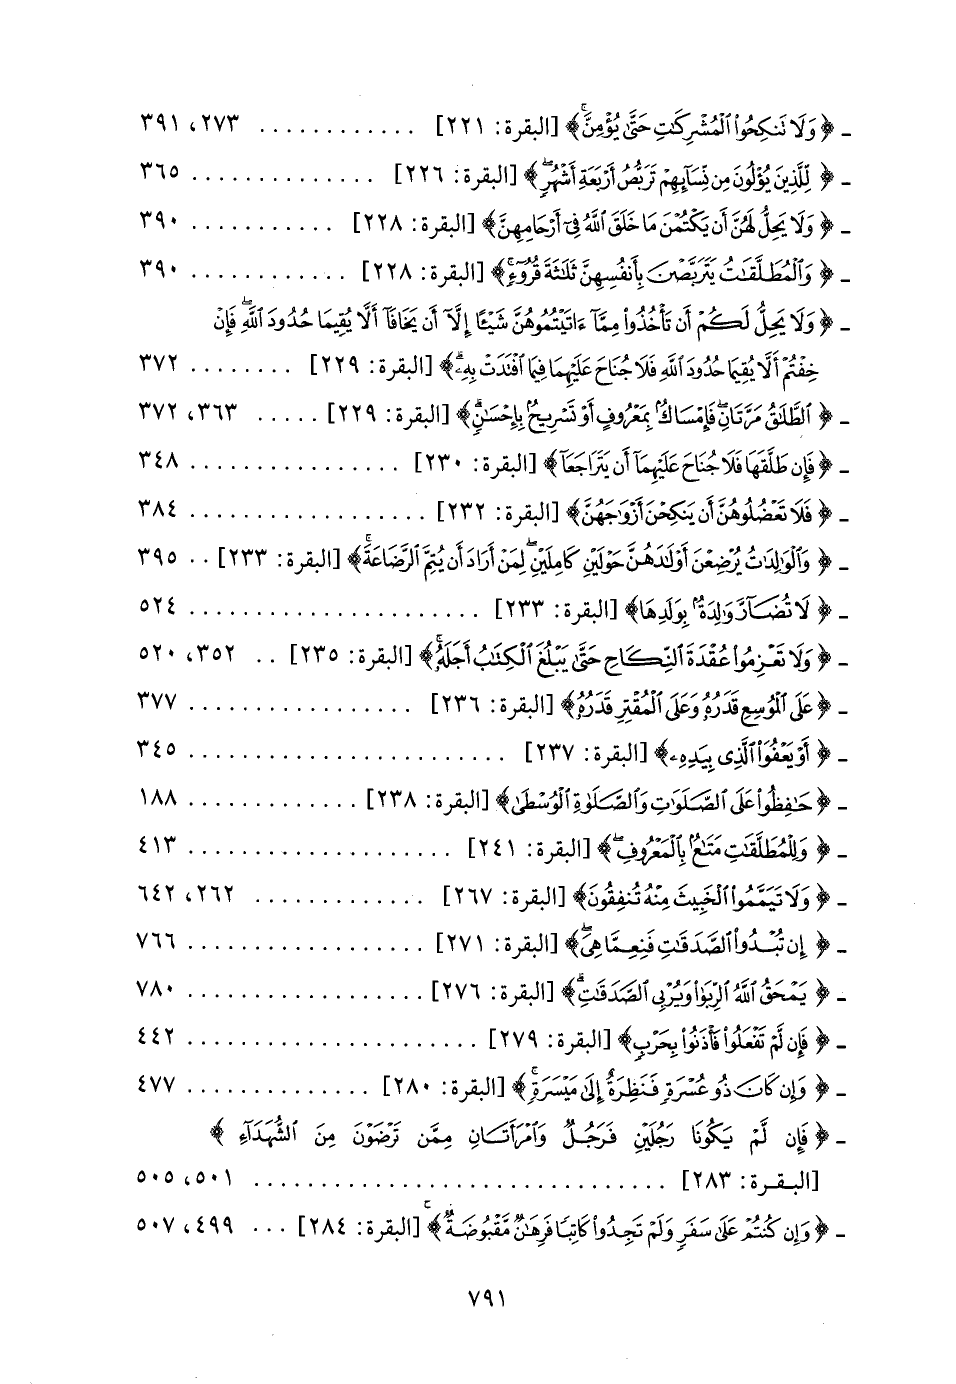 ـ ﴿ وَلَا تَنكِحُوا۟ ٱلْمُشْرِكَٰتِ حَتَّىٰ يُؤْمِنَّۚ ﴾ [البقرة: ٢٢١] . . . . . . . . . . . . ٢٧٣، ٣٩١
ـ ﴿ لِّلَّذِينَ يُؤْلُونَ مِن نِّسَآئِهِمْ تَرَبُّصُ أَرْبَعَةِ أَشْهُرٍۖ ﴾ [البقرة: ٢٢٦] . . . . . . . . . . . . . . ٣٦٥
ـ ﴿ وَلَا يَحِلُّ لَهُنَّ أَن يَكْتُمْنَ مَا خَلَقَ ٱللَّهُ فِىٓ أَرْحَامِهِنَّ ﴾ [البقرة: ٢٢٨] . . . . . . . . . . . ٣٩٠
ـ ﴿ وَٱلْمُطَلَّقَٰتُ يَتَرَبَّصْنَ بِأَنفُسِهِنَّ ثَلَٰثَةَ قُرُوٓءٍۚ ﴾ [البقرة: ٢٢٨] . . . . . . . . . . . . ٣٩٠
ـ ﴿ وَلَا يَحِلُّ لَكُمْ أَن تَأْخُذُوا۟ مِمَّآ ءَاتَيْتُمُوهُنَّ شَيْـًٔا إِلَّآ أَن يَخَافَآ أَلَّا يُقِيمَا حُدُودَ ٱللَّهِۖ فَإِنْ
خِفْتُمْ أَلَّا يُقِيمَا حُدُودَ ٱللَّهِ فَلَا جُنَاحَ عَلَيْهِمَا فِيمَا ٱفْتَدَتْ بِهِۦۗ ﴾ [البقرة: ٢٢٩] . . . . . . . . ٣٧٢
ـ ﴿ ٱلطَّلَٰقُ مَرَّتَانِۖ فَإِمْسَاكٌۢ بِمَعْرُوفٍ أَوْ تَسْرِيحٌۢ بِإِحْسَٰنٍۗ ﴾ [البقرة: ٢٢٩] . . . . . ٣٦٣، ٣٧٢
ـ ﴿ فَإِن طَلَّقَهَا فَلَا جُنَاحَ عَلَيْهِمَآ أَن يَتَرَاجَعَآ ﴾ [البقرة: ٢٣٠] . . . . . . . . . . . . . . . . ٣٤٨
ـ ﴿ فَلَا تَعْضُلُوهُنَّ أَن يَنكِحْنَ أَزْوَٰجَهُنَّ ﴾ [البقرة: ٢٣٢] . . . . . . . . . . . . . . . . . . ٣٨٤
ـ ﴿ وَٱلْوَٰلِدَٰتُ يُرْضِعْنَ أَوْلَٰدَهُنَّ حَوْلَيْنِ كَامِلَيْنِۖ لِمَنْ أَرَادَ أَن يُتِمَّ ٱلرَّضَاعَةَۚ ﴾ [البقرة: ٢٣٣] . . ٣٩٥
ـ ﴿ لَا تُضَآرَّ وَٰلِدَةٌۢ بِوَلَدِهَا ﴾ [البقرة: ٢٣٣] . . . . . . . . . . . . . . . . . . . . . . ٥٢٤
ـ ﴿ وَلَا تَعْزِمُوا۟ عُقْدَةَ ٱلنِّكَاحِ حَتَّىٰ يَبْلُغَ ٱلْكِتَٰبُ أَجَلَهُۥۚ ﴾ [البقرة: ٢٣٥] . . ٣٥٢، ٥٢٠
ـ ﴿ عَلَى ٱلْمُوسِعِ قَدَرُهُۥ وَعَلَى ٱلْمُقْتِرِ قَدَرُهُۥ ﴾ [البقرة: ٢٣٦] . . . . . . . . . . . . . . . . . ٣٧٧
ـ ﴿ أَوْ يَعْفُوَا۟ ٱلَّذِى بِيَدِهِۦ ﴾ [البقرة: ٢٣٧] . . . . . . . . . . . . . . . . . . . . . . . . ٣٤٥
ـ ﴿ حَٰفِظُوا۟ عَلَى ٱلصَّلَوَٰتِ وَٱلصَّلَوٰةِ ٱلْوُسْطَىٰ ﴾ [البقرة: ٢٣٨] . . . . . . . . . . . . . ١٨٨
ـ ﴿ وَلِلْمُطَلَّقَٰتِ مَتَٰعٌۢ بِٱلْمَعْرُوفِۖ ﴾ [البقرة: ٢٤١] . . . . . . . . . . . . . . . . . . . . ٤١٣
ـ ﴿ وَلَا تَيَمَّمُوا۟ ٱلْخَبِيثَ مِنْهُ تُنفِقُونَ ﴾ [البقرة: ٢٦٧] . . . . . . . . . . . . . ٢٦٢، ٦٤٢
ـ ﴿ إِن تُبْدُوا۟ ٱلصَّدَقَٰتِ فَنِعِمَّا هِىَۖ ﴾ [البقرة: ٢٧١] . . . . . . . . . . . . . . . . . . ٧٦٦
ـ ﴿ يَمْحَقُ ٱللَّهُ ٱلرِّبَوٰا۟ وَيُرْبِى ٱلصَّدَقَٰتِۗ ﴾ [البقرة: ٢٧٦] . . . . . . . . . . . . . . . . . . ٧٨٠
ـ ﴿ فَإِن لَّمْ تَفْعَلُوا۟ فَأْذَنُوا۟ بِحَرْبٍ ﴾ [البقرة: ٢٧٩] . . . . . . . . . . . . . . . . . . . . . . ٤٤٢
ـ ﴿ وَإِن كَانَ ذُو عُسْرَةٍ فَنَظِرَةٌ إِلَىٰ مَيْسَرَةٍۚ ﴾ [البقرة: ٢٨٠] . . . . . . . . . . . . . . ٤٧٧
ـ ﴿ فَإِن لَّمْ يَكُونَا رَجُلَيْنِ فَرَجُلٌ وَٱمْرَأَتَانِ مِمَّن تَرْضَوْنَ مِنَ ٱلشُّهَدَآءِ ﴾
[البقرة: ٢٨٣] . . . . . . . . . . . . . . . . . . . . . . . . . . . . . . . . ٥٠١، ٥٠٥
ـ ﴿ وَإِن كُنتُمْ عَلَىٰ سَفَرٍ وَلَمْ تَجِدُوا۟ كَاتِبًا فَرِهَٰنٌ مَّقْبُوضَةٌۖ ﴾ [البقرة: ٢٨٤] . . . ٤٩٩، ٥٠٧
٧٩١